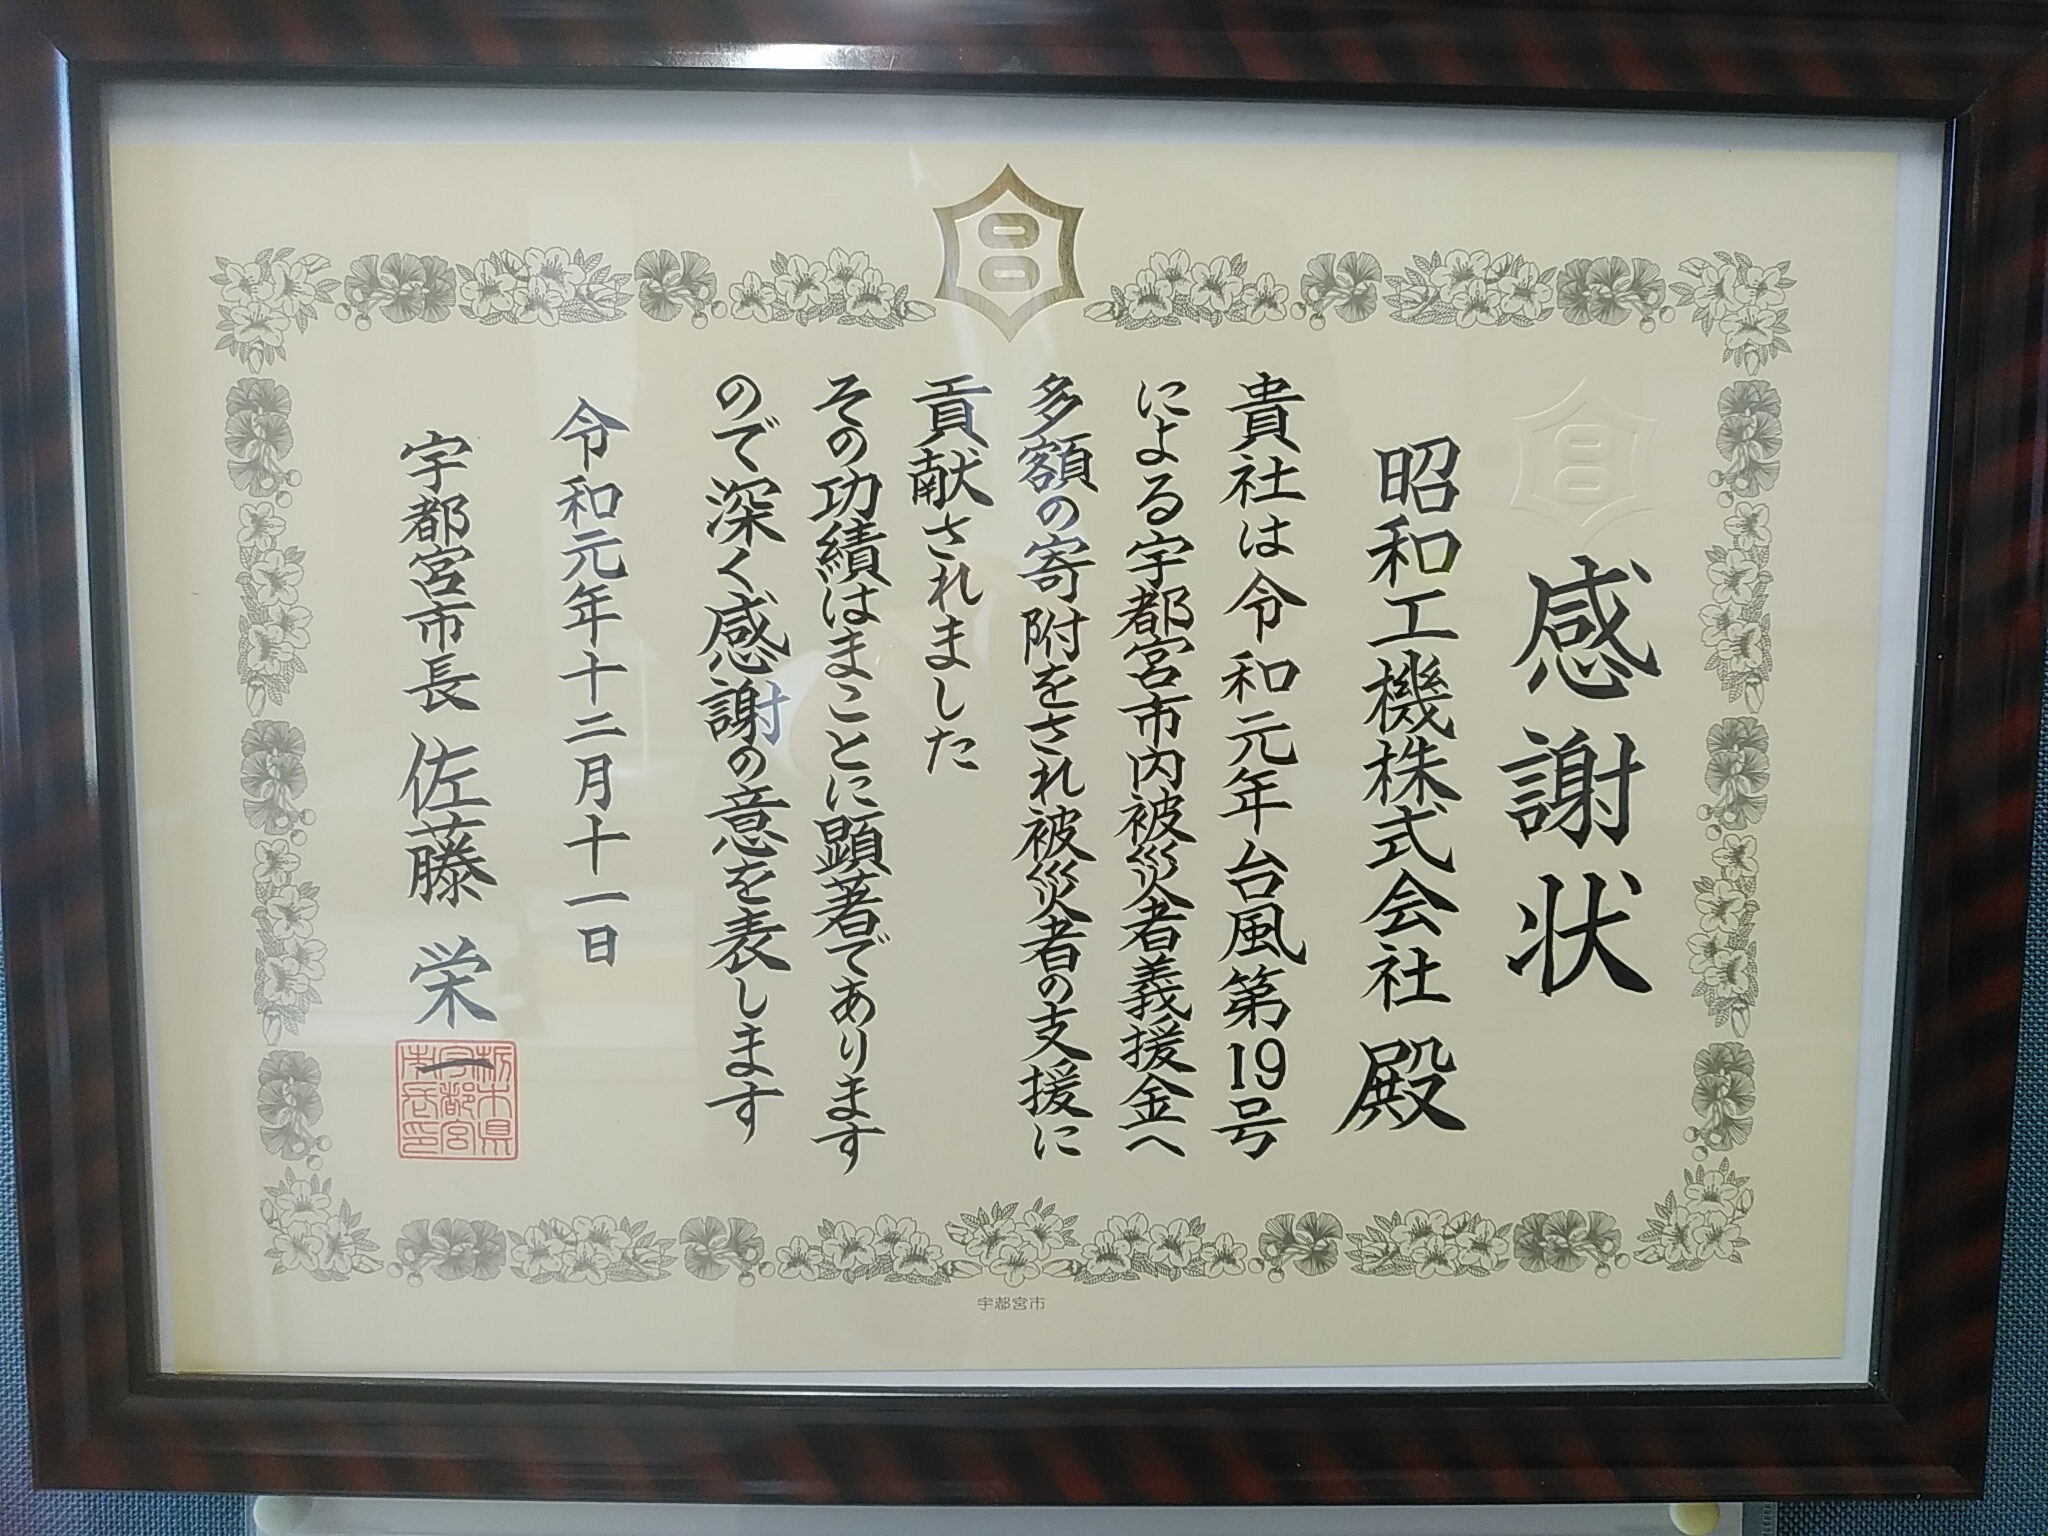 感謝状
昭和工機株式会社 殿
貴社は令和元年台風第19号
による宇都宮市内被災者義援金へ
多額の寄附をされ被災者の支援に
貢献されました
その功績はまことに顕著であります
ので深く感謝の意を表します
令和元年十二月十一日
宇都宮市長 佐藤 栄一
栃木県
宇都宮
市長印
宇都宮市